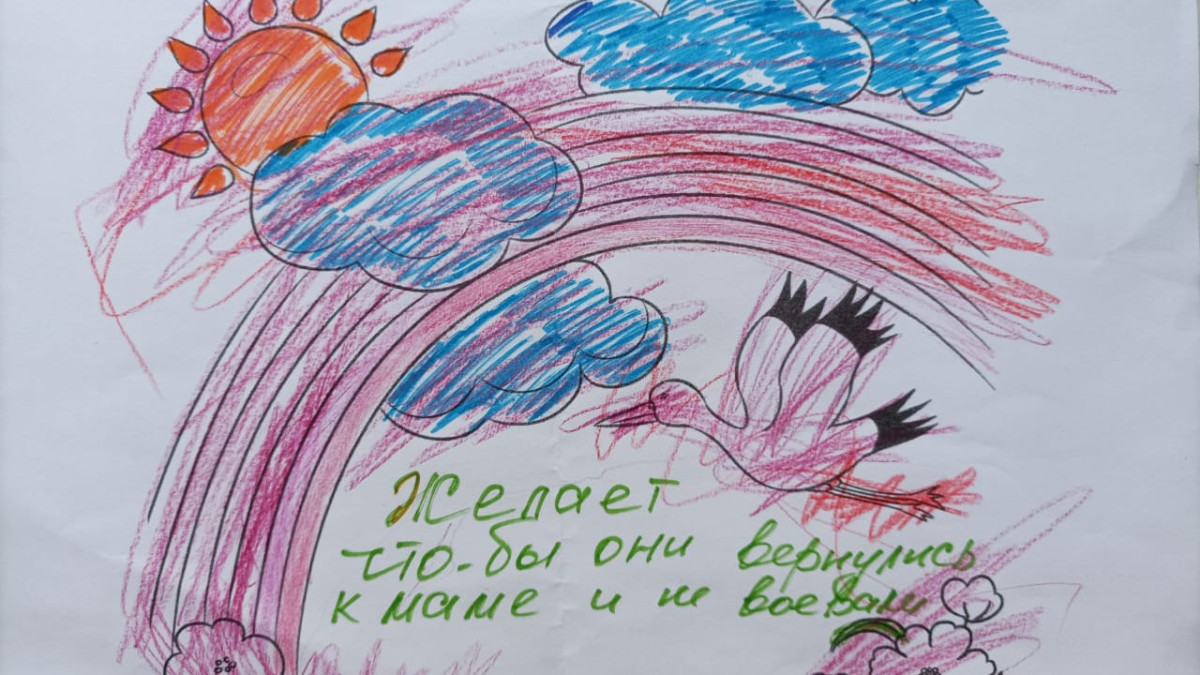 Желает
что-бы они вернулись
к маме и не воевали